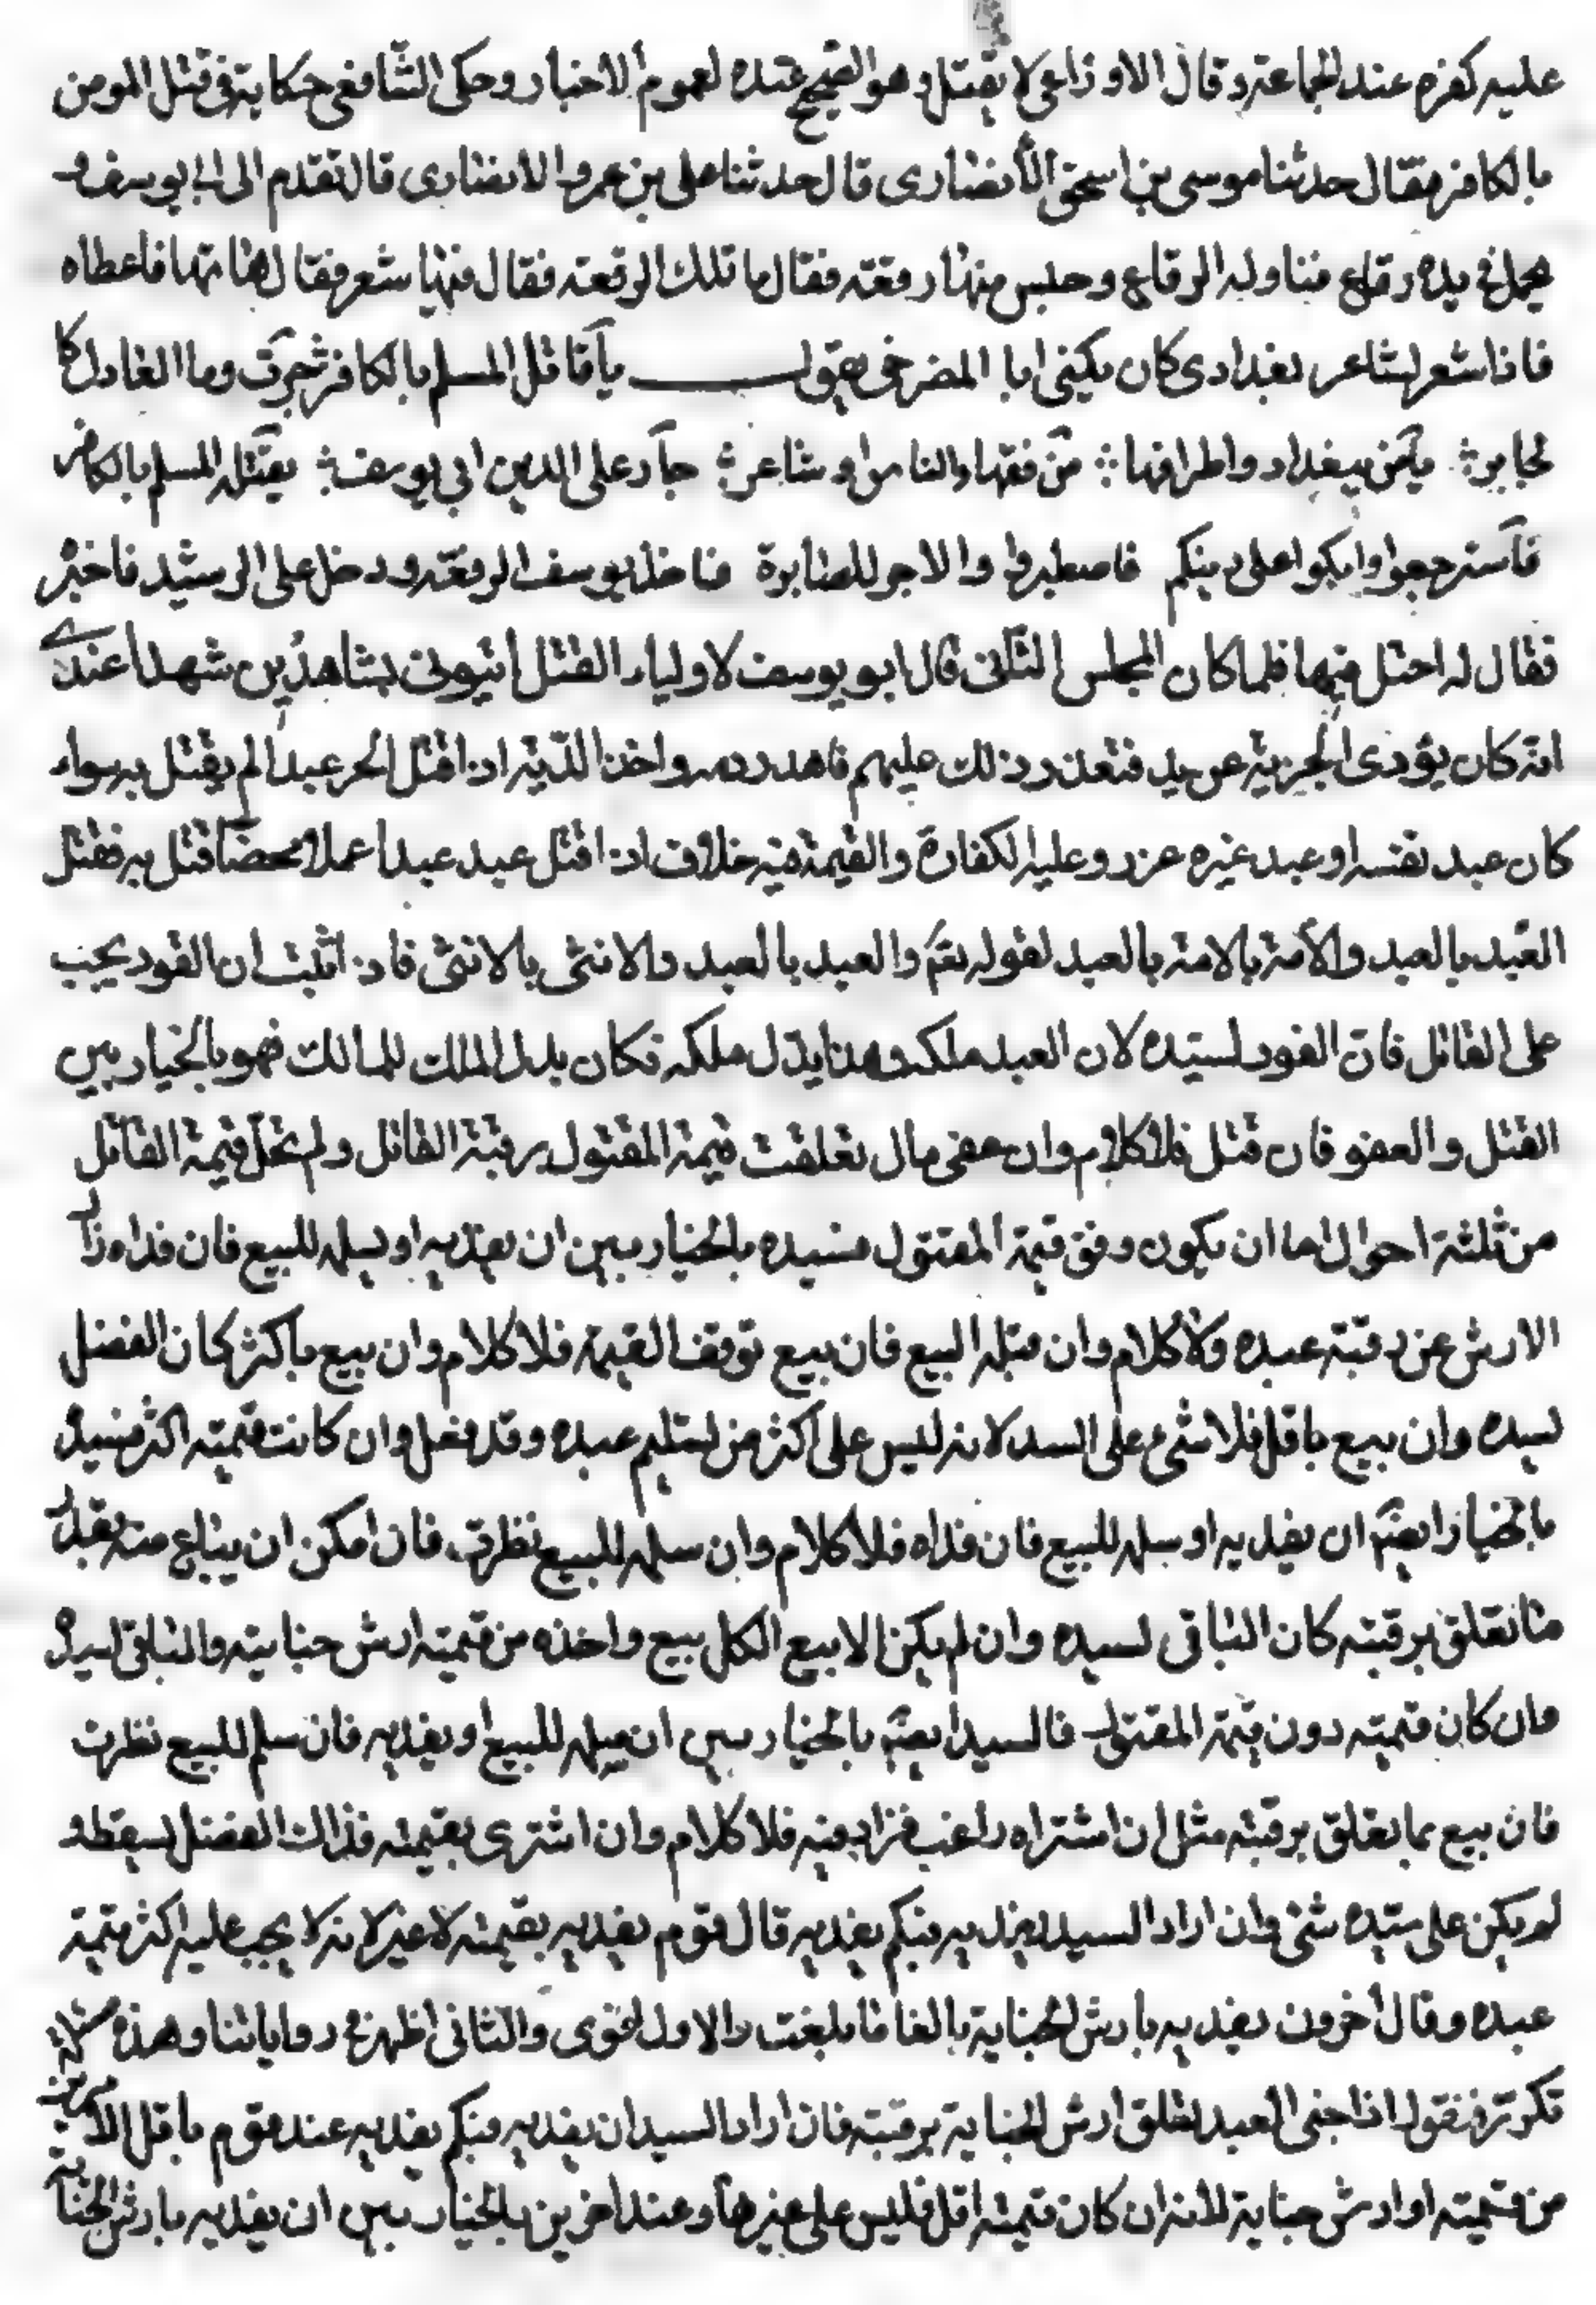 عليه كفره عند الجماعة وقال الاوزاعي لا يقتل وهو الصحيح عنده لعموم الاخبار وحكى الشافعي حكاية في قتل المومن
بالكافر فقال حدثنا موسى بن اسحق الأنصارى قال حدثنا على بن عمروا الانصارى قال تقدم الى ابى يوسف و
في يده رقاع فناوله الرقاع وحبس منها رقعة فقال ما تلك الرقعة فقال فيها شعر فقال هاتها فاعطاه
فاذا شعر لشاعر بغدادى كان يكنى ابا المضرخى يقول يا قاتل المسلم بالكافر جرت وما العادل كا
لجاير يا من ببغداد واطرافها من فقهاء الناس او شاعر جار على الدين ابى يوسف يقتله المسلم بالكافر
فاسترجعوا وابكوا على دينكم فاصطبروا والاجر للصابرة فاخذ ابو يوسف الرقعة ودخل على الرشيد فاخبر
فقال له احتل فيها فلما كان المجلس الثانى قال ابو يوسف لاولياء القتل ائتيونى بشاهدين شهدا عندى
انه كان يؤدى الجزية عن يد فتعذر ذلك عليهم فاهدر دمه واخذ الدية اذا قتل الحر عبدا لم يقتل به سواء
كان عبد نفسه او عبد غيره عزر وعليه الكفارة والقيمة فيه خلاف اذا قتل عبد عبدا عملا محضا قتل به فقتل
العبد بالعبد والأمة بالامة بالعبد لقوله تعم والعبد بالعبد والانثى بالانثى فاذا اثبت ان القود يجب
على القاتل فان القود لسيده لان العبد ملكه وهذا بدل ملكه فكان بدل الملك للمالك فهو بالخيار بين
القتل والعفو فان قتل فلا كلام وان عفى مال تعلقت قيمة المقتول برقبة القاتل ولم تخل قيمة القاتل
من ثلثة احوال اما ان يكون وفق قيمة المقتول فسيده بالخيار بين ان يفديه او يسلمه للبيع فان فداه زال
الارش عن رقبة عبده ولا كلام وان قبله البيع فان بيع توقف القيمة فلا كلام وان بيع باكثر كان الفضل
لسيده وان بيع باقل فلا شىء على السد لانه ليس على اكثر من تسليم عبده وقد فعل وان كانت قيمته اكثر فسيده
بالخيار ايضم ان يفديه او سلمه للبيع فان فداه فلا كلام وان سلمه للبيع نظرت فان امكن ان يباع منه بقدر
ما تعلق برقبته كان الباقى لسيده وان لم يكن الا بيع الكل بيع واخذه من قيمته ارش جنايته والباقى لسيده
وان كان قيمته دون قيمة المقتول فالسيد ايضم بالخيار بين ان يسلمه للبيع او يفديه فان سلم للبيع نظرت
فان بيع بما تعلق برقبته مثل ان اشتراه راغب فزاد فيه فلا كلام وان اشترى بقيمته فذاك الفضل يسقط و
لم يكن على سيده شئ وان اراد السيد يفديه فبكم يفديه قال قوم يفديه بقيمته لا غير لانه لا يجب عليه اكثر قيمة
عبده وقال أخرون يفديه بارش الجناية بالغا ما بلغت والاول اقوى والثانى اظهر في رواياتنا وهذه مسئلة
تكررة فنقول اذا جنى العبد تعلق ارش الجناية برقبته فان اراد السيد ان يفديه فبكم يفديه عند قوم باقل الامرين
من قيمته او ارش جناية لانه ان كان قيمته اقل فليس على غيرها وعند اخرين بالخيار بين ان يفديه بارش الجناية